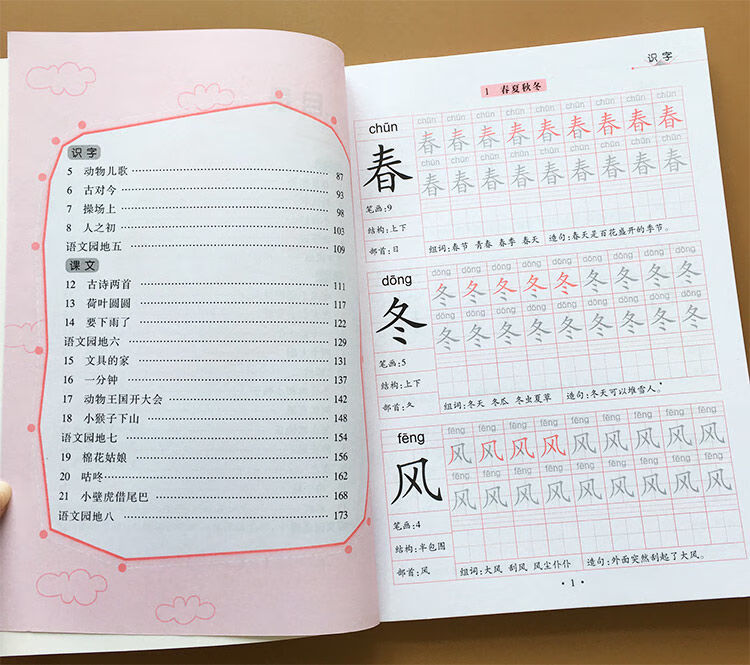 识字
5 动物儿歌 87
6 古对今 93
7 操场上 98
8 人之初 103
语文园地五 109
课文
12 古诗两首 111
13 荷叶圆圆 117
14 要下雨了 122
语文园地六 129
15 文具的家 131
16 一分钟 137
17 动物王国开大会 142
18 小猴子下山 148
语文园地七 154
19 棉花姑娘 156
20 咕咚 162
21 小壁虎借尾巴 168
语文园地八 173
识字
1 春夏秋冬
chūn
春
chūn chūn chūn chūn chūn chūn chūn chūn chūn
春 春 春 春 春 春 春 春 春
chūn chūn chūn chūn chūn chūn chūn chūn chūn
春 春 春 春 春 春 春 春 春
笔画:9
结构:上下
部首:日
组词:春节 青春 春季 春天 造句:春天是百花盛开的季节。
dōng
冬
dōng dōng dōng dōng dōng dōng dōng dōng dōng
冬 冬 冬 冬 冬 冬 冬 冬 冬
dōng dōng dōng dōng dōng dōng dōng dōng dōng
冬 冬 冬 冬 冬 冬 冬 冬 冬
笔画:5
结构:上下
部首:夂
组词:冬天 冬瓜 冬虫夏草 造句:冬天可以堆雪人。
fēng
风
fēng fēng fēng fēng fēng fēng fēng fēng fēng
风 风 风 风 风 风 风 风 风
fēng fēng fēng fēng fēng fēng fēng fēng fēng
风 风 风 风 风 风 风 风 风
笔画:4
结构:半包围
部首:风
组词:大风 刮风 风尘仆仆 造句:外面突然刮起了大风。
· 1 ·